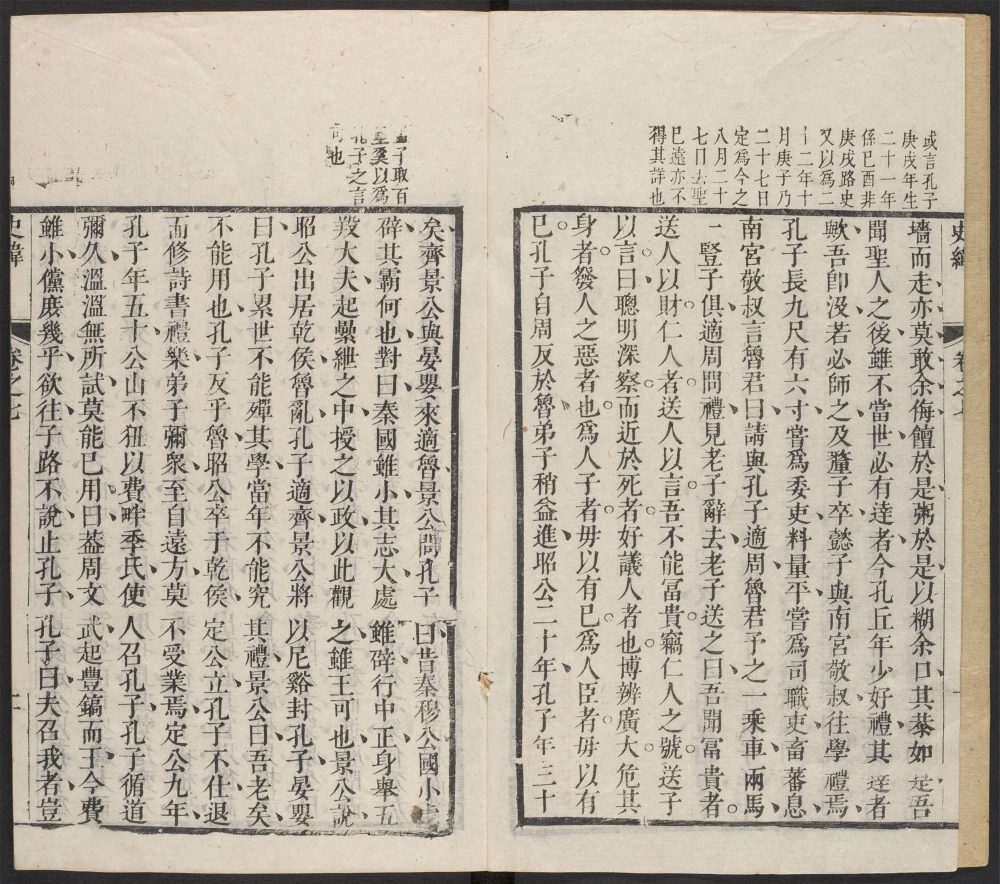 或言孔子
庚戌年生
二十一年
係已酉非
庚戌路史
又以為二
十二年十
月庚子乃
二十七日
定為今之
八月二十
七日去聖
已遠亦不
得其詳也
史緯
卷之七
墻而走亦莫敢余侮饘於是粥於是以糊余口其恭如是吾
聞聖人之後雖不當世必有達者今孔丘年少好禮其達者
歟吾卽沒若必師之及釐子卒懿子與南宮敬叔往學禮焉
孔子長九尺有六寸嘗爲委吏料量平嘗爲司職吏畜蕃息
南宮敬叔言魯君曰請與孔子適周魯君予之一乗車兩馬
一豎子俱適周問禮見老子辭去老子送之曰吾聞冨貴者
送人以財仁人者送人以言吾不能冨貴竊仁人之號送子
以言曰聰明深察而近於死者好議人者也博辨廣大危其
身者發人之惡者也爲人子者毋以有已爲人臣者毋以有
已孔子自周反於魯弟子稍益進昭公二十年孔子年三十
子取百
里奚以爲
孔子之言
也
矣齊景公與晏嬰來適魯景公問孔子曰昔秦穆公國小處
僻其霸何也對曰秦國雖小其志大處雖僻行中正身舉五
羖大夫起纍紲之中授之以政以此觀之雖王可也景公說
昭公出居乾侯魯亂孔子適齊景公將以尼谿封孔子晏嬰
曰孔子累世不能殫其學當年不能究其禮景公曰吾老矣
不能用也孔子反乎魯昭公卒于乾侯定公立孔子不仕退
而修詩書禮樂弟子彌衆至自遠方莫不受業焉定公九年
孔子年五十公山不狃以費畔季氏使人召孔子孔子循道
彌久溫溫無所試莫能已用曰葢周文武起豐鎬而王今費
雖小儻庶幾乎欲往子路不說止孔子孔子曰夫召我者豈
史緯
卷之七